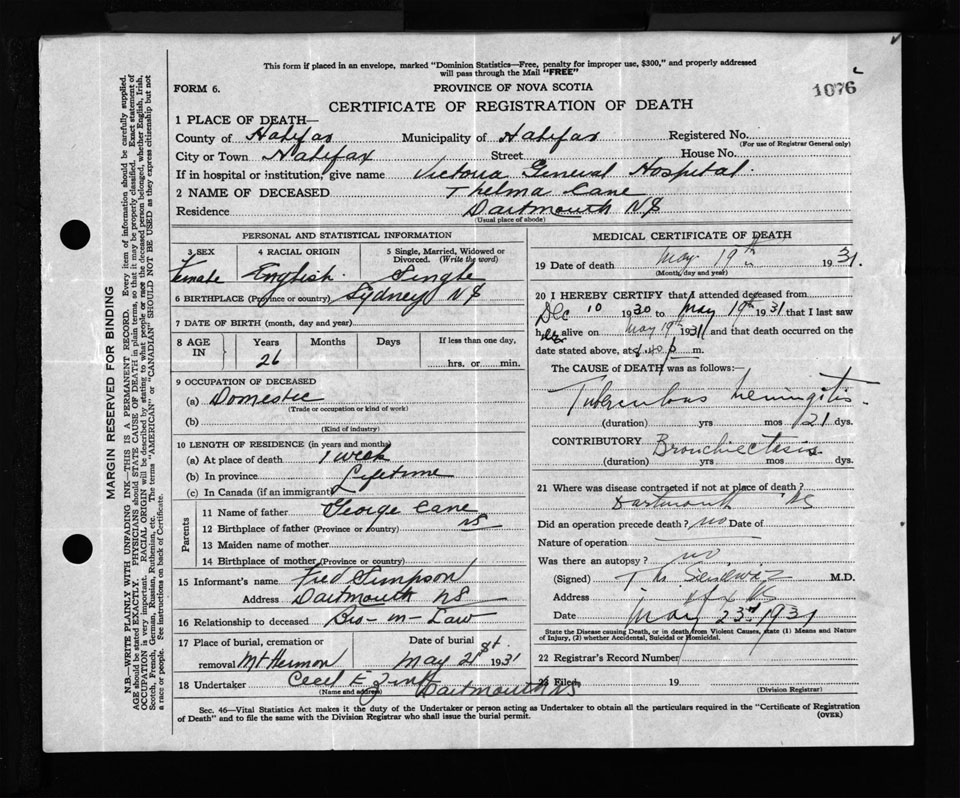 This form if placed in an envelope, marked "Dominion Statistics—Free, penalty for improper use, $300," and properly addressed
will pass through the Mail "FREE"
FORM 6.
PROVINCE OF NOVA SCOTIA
1076
CERTIFICATE OF REGISTRATION OF DEATH
1 PLACE OF DEATH—
County of Halifax Municipality of Halifax Registered No.
(For use of Registrar General only)
City or Town Halifax Street House No.
If in hospital or institution, give name Victoria General Hospital.
2 NAME OF DECEASED Thelma Cane
Residence Dartmouth NS
(Usual place of abode)
PERSONAL AND STATISTICAL INFORMATION
3 SEX Female
4 RACIAL ORIGIN English.
5 Single, Married, Widowed or Divorced. (Write the word) Single
6 BIRTHPLACE (Province or country) Sydney NS
7 DATE OF BIRTH (month, day and year)
8 AGE IN Years Months Days If less than one day,
26 hrs. or min.
9 OCCUPATION OF DECEASED
(a) Domestic
(Trade or occupation or kind of work)
(b)
(Kind of industry)
10 LENGTH OF RESIDENCE (in years and months)
(a) At place of death 1 week
(b) In province Lifetime
(c) In Canada (if an immigrant)
Parents
11 Name of father George Cane
12 Birthplace of father (Province or country) NS
13 Maiden name of mother
14 Birthplace of mother (Province or country)
15 Informant's name Fred Simpson
Address Dartmouth NS
16 Relationship to deceased Bro-in-Law
17 Place of burial, cremation or Date of burial
removal Mt Hermon May 21st 1931
18 Undertaker Cecil E Zink Dartmouth NS
(Name and address)
MEDICAL CERTIFICATE OF DEATH
19 Date of death May 19th 1931.
(Month, day and year)
20 I HEREBY CERTIFY that I attended deceased from
Dec 10 1930 to May 19th 1931 that I last saw
her alive on May 19th 1931 and that death occurred on
date stated above, at 8.40 p m.
The CAUSE of DEATH was as follows:—
Tuberculous Meningitis
(duration) yrs mos 21 dys.
CONTRIBUTORY Bronchiectasis
(duration) yrs mos dys.
21 Where was disease contracted if not at place of death?
Dartmouth NS
Did an operation precede death? no Date of
Nature of operation
Was there an autopsy? no
(Signed) M.D.
Address Hfx NS
Date May 23rd 1931
State the Disease causing Death, or in death from Violent Causes, state (1) Means and Nature
of Injury, (2) whether Accidental, Suicidal or Homicidal.
22 Registrar's Record Number
23 Filed 19
(Division Registrar)
Sec. 46—Vital Statistics Act makes it the duty of the Undertaker or person acting as Undertaker to obtain all the particulars required in the "Certificate of Registration
of Death" and to file the same with the Division Registrar who shall issue the burial permit. (OVER)
MARGIN RESERVED FOR BINDING
N.B.—WRITE PLAINLY WITH UNFADING INK—THIS IS A PERMANENT RECORD. Every item of information should be carefully supplied.
AGE should be stated EXACTLY. PHYSICIANS should STATE CAUSE OF DEATH in plain terms, so that it may be properly classified. Exact statement of
OCCUPATION is very important. RACIAL ORIGIN will be described by stating to what people or race the deceased person belonged, whether English, Irish,
Scotch, French, German, Russian, Ruthenian, etc. The terms "AMERICAN" or "CANADIAN" SHOULD NOT BE USED as they express citizenship but not
a race or people. See instructions on back of Certificate.